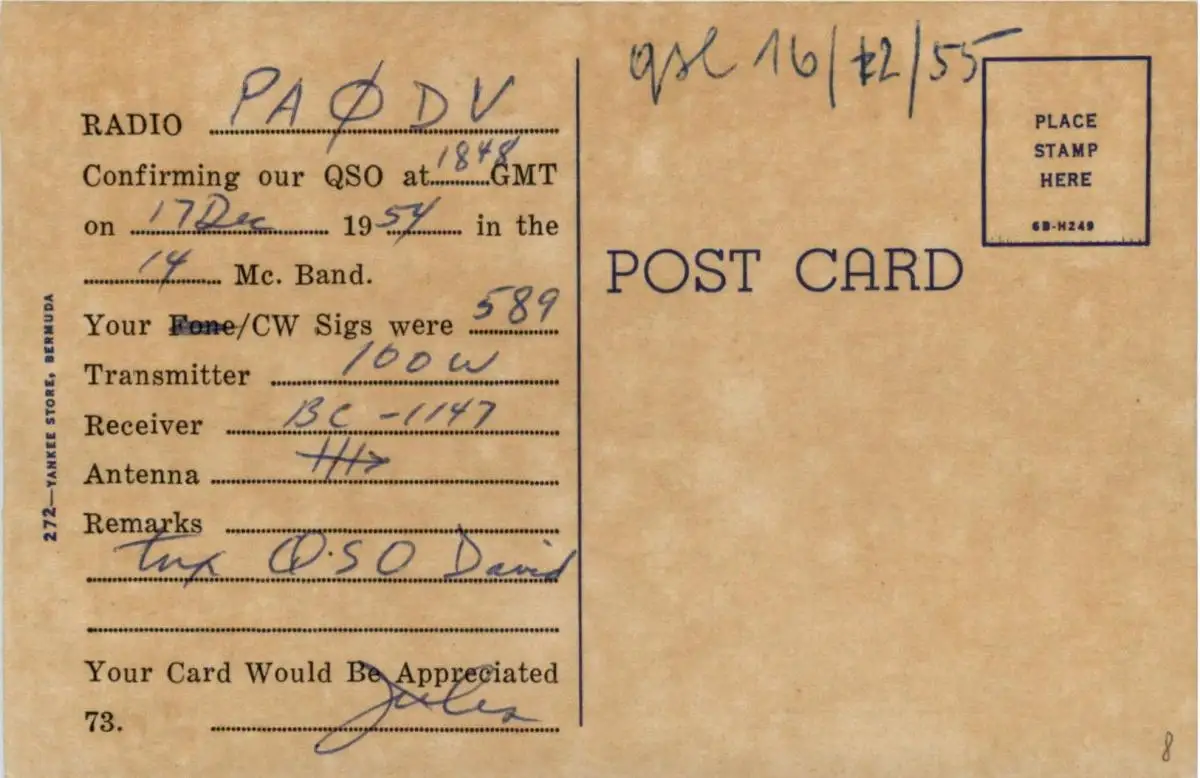 RADIO PAØDV
Confirming our QSO at 1848 GMT
on 17 Dec 1954 in the
14 Mc. Band.
Your Fone/CW Sigs were 589
Transmitter 100 W
Receiver BC-1147
Antenna
Remarks
tnx QSO David
Your Card Would Be Appreciated
73. Jules
272—YANKEE STORE, BERMUDA
qsl 16/12/55
PLACE
STAMP
HERE
6B-H249
POST CARD
8